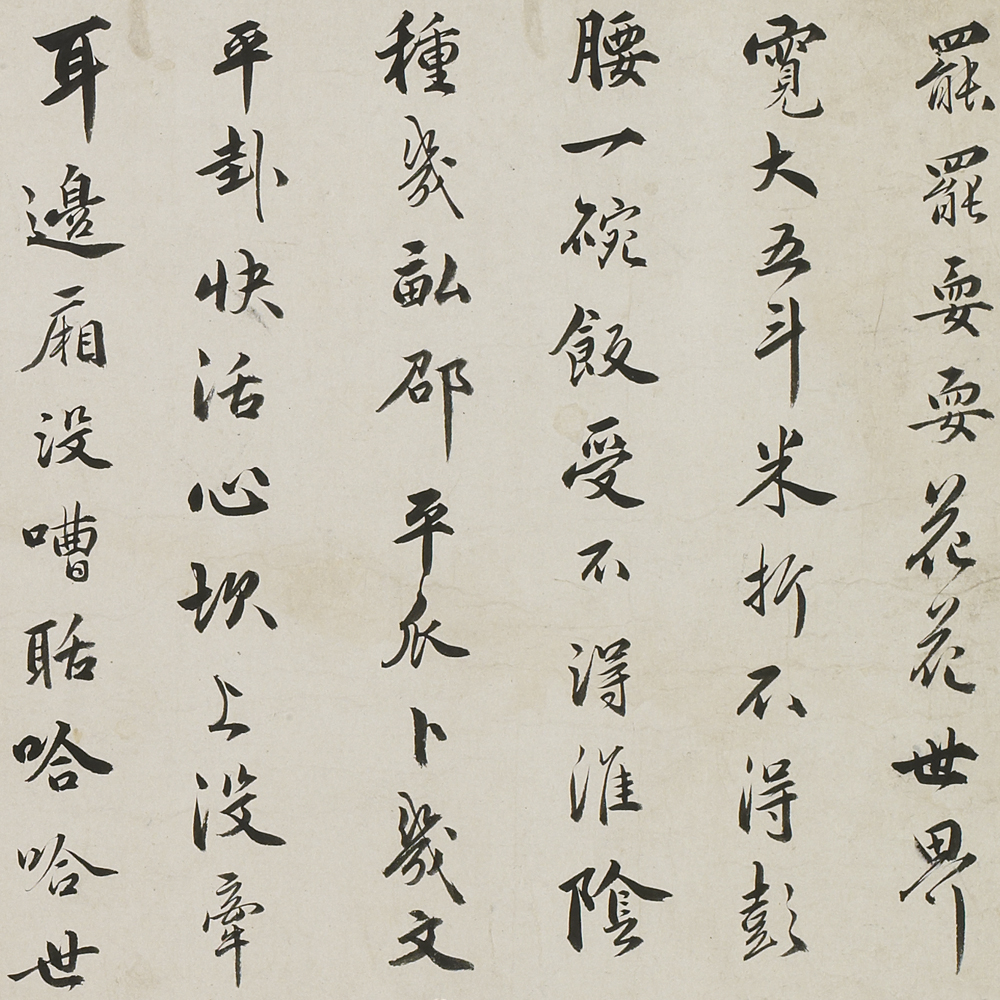 罷罷耍耍花花世界
寬大五斗米折不得彭
腰一碗飯受不得淮陰
種幾畝邵平瓜卜幾文
平卦快活心坎上沒牽
耳邊廂沒嘈聒哈哈世